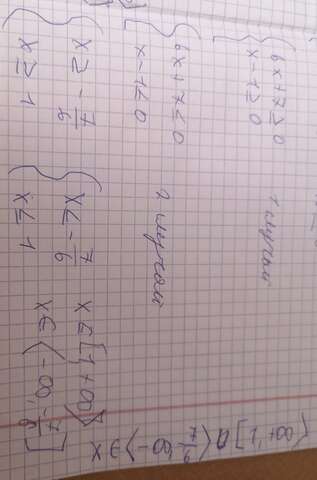 6x + 7 ≥ 0
x - 1 ≥ 0
1 случай
6x + 7 ≤ 0
x - 1 ≤ 0
2 случай
x ≥ - 7/6
x ≥ 1
x ≤ - 7/6
x ≤ 1
x ∈ [1; +∞)
x ∈ (-∞; -7/6]
x ∈ (-∞; -7/6] ∪ [1; +∞)